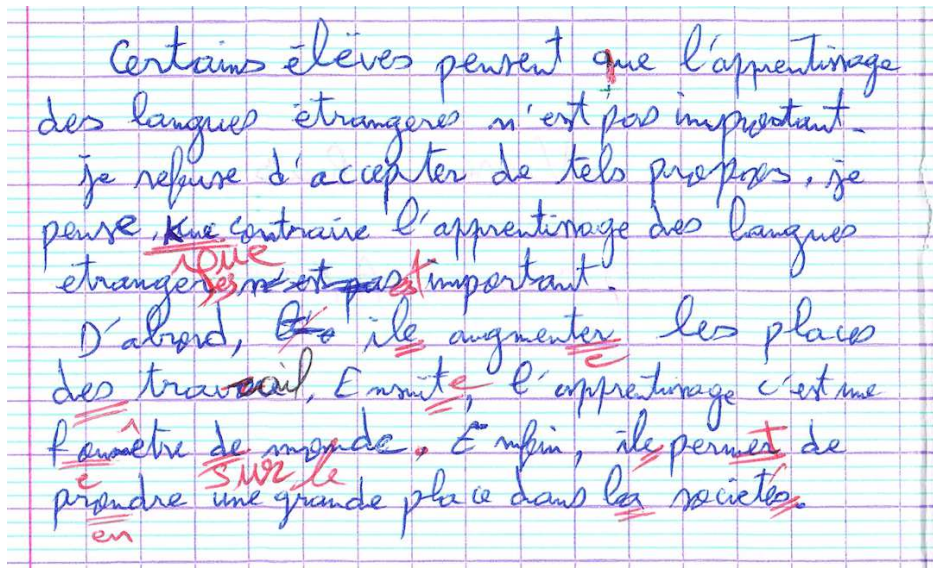 Certains élèves pensent que l'apprentissage
des langues étrangeres n'est pas improtant.
je refuse d'accepter de tels propos, je
pense, Kue contraire l'apprentissage des langues
que
etrangeres n'est pas est important.
D'abord, ile augmenter les places
e
des travail, Ensuite, l'apprentissage c'est une
fenêtre de monde. Enfin, ile permet de
e sur le
prandre une grande place dans les societés.
en